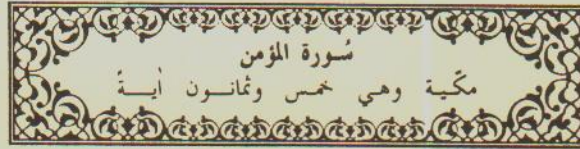 سُورة المؤمن
مكّية وهي خمس وثمانـــون أيـــةً